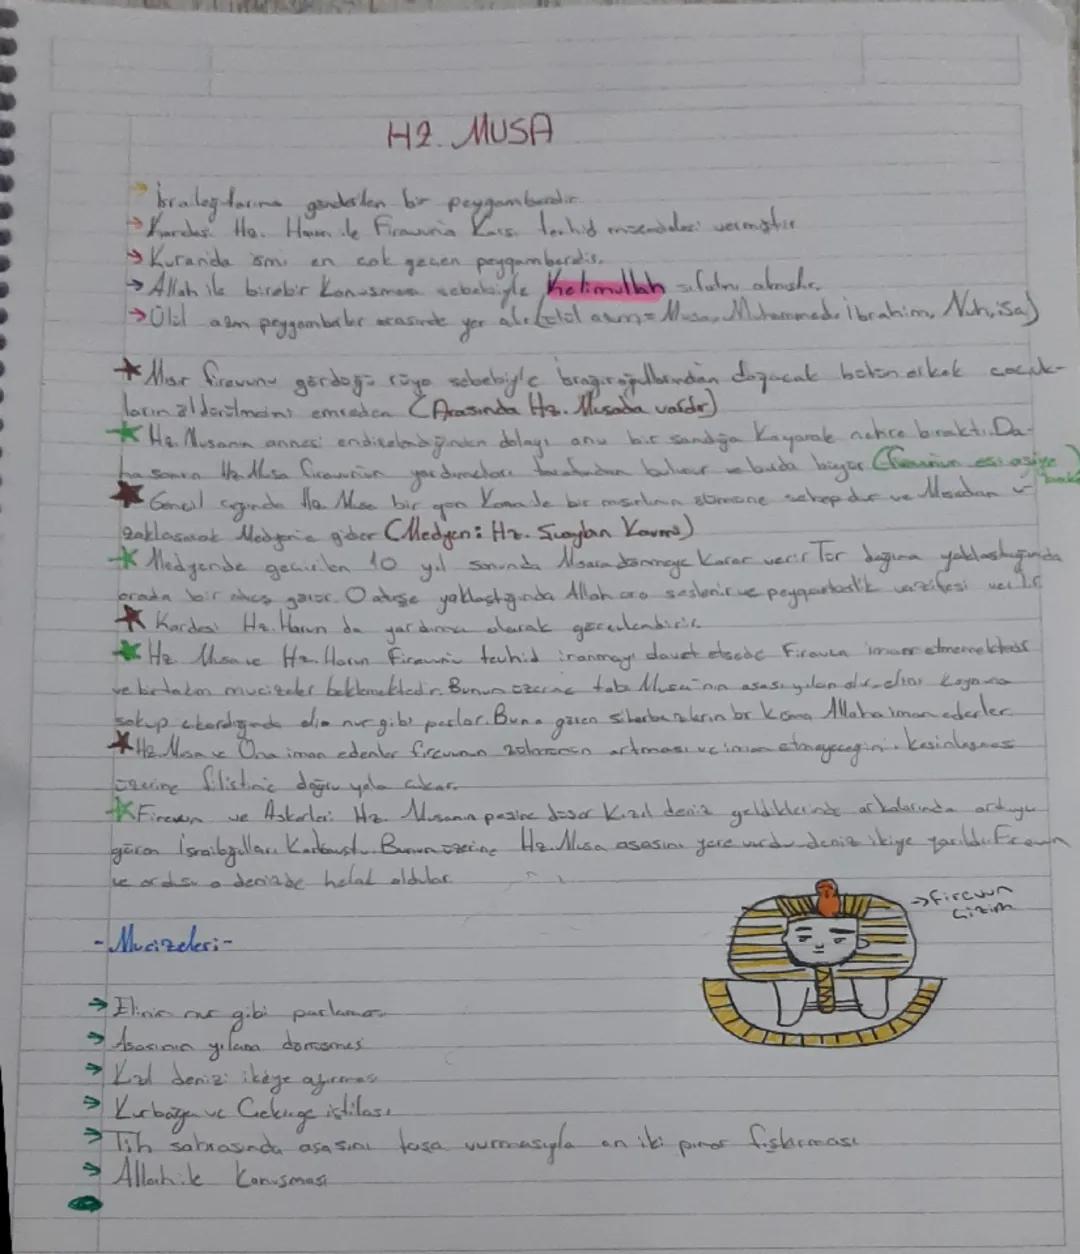 HZ. MUSA
İsrailoğullarına gönderilen bir peygamberdir.
Kardeşi Hz. Harun ile Firavuna Karşı tevhid mücadelesi vermiştir
Kuranda ismi en çok geçen peygamberdir.
Allah ile birebir Konuşması sebebiyle Kelimullah sıfatını almıştır.
Ülül azm peygamberler arasında yer alır (ülül azm = Musa, Muhammed, İbrahim, Nuh, isa)
Mısır firavunu gördüğü rüya sebebiyle İsrailoğullarından doğacak bütün erkek çocuk-
ların öldürülmesini emreden (Arasında Hz. Musada vardır)
Hz. Musanın annesi endişelendiğinden dolayı onu bir sandığa Koyarak nehre bıraktı. Da-
ha sonra Hz. Musa firavunun yardımcıları tarafından bulunur ve burda büyür (firavunun eşi asiye)
Genclik çağında Hz. Musa bir gün Kavmi ile bir mısırlının ölümüne sebep olur ve Mısırdan u-
zaklaşarak Medyen'e gider (Medyen: Hz. Şuaybın Kavmi)
Medyende geçirilen 10 yıl sonunda Mısıra dönmeye Karar verir Tur dağına yaklaştığında
orada bir ateş görür. O ateşe yaklaştığında Allah ona seslenir ve peygamberlik vazifesi verilir
Kardeşi Hz. Harun da yardımcı olarak görevlendirilir.
Hz Musa ve Hz. Harun Firavunu tevhid inanmayı davet etsede Firavun iman etmemektedir
ve birtakım mucizeler beklemektedir. Bunun üzerine tabi Musa'nın asası yılan olur elini Koynuna
sokup çıkardığında elin nur gibi parlar. Bunu gören sihirbazların bir Kısmı Allaha iman ederler.
Hz. Musa ve Ona iman edenler firavunun zulmünün artması ve iman etmeyeceğini kesinleşmesi
üzerine filistine doğru yola çıkar.
Firavun ve Askerleri Hz. Musanın peşine düşer Kızıl deniz geldiklerinde arkalarında orduyu
gören İsrailoğulları Korkmuştu. Bunun üzerine Hz. Musa asasını yere vurdu deniz ikiye yarıldı. Firavun
ve ordusu o denizde helak oldular.
→ firavun
çizim
- Mucizeleri -
Elinin nur gibi parlaması
Asasının yılana dönüşmesi
Kızıl denizi ikiye ayırması
Kurbağa ve Çekirge istilası
Tih sahrasında asasını taşa vurmasıyla on iki pınar fışkırması
Allah ile Konuşması